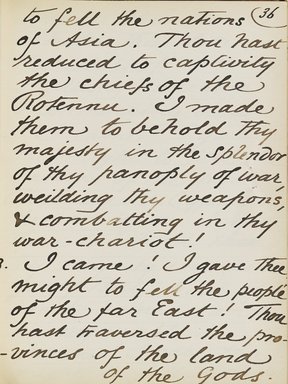 36
to fell the nations
of Asia. Thou hast
reduced to captivity
the chiefs of the
Rotennu. I made
them to behold thy
majesty in the splendor
of thy panoply of war,
weilding thy weapons,
& combatting in thy
war-chariot!
3. I came! I gave thee
might to fell the people
of the far East! Thou
hast traversed the pro-
-vinces of the land
of the Gods.